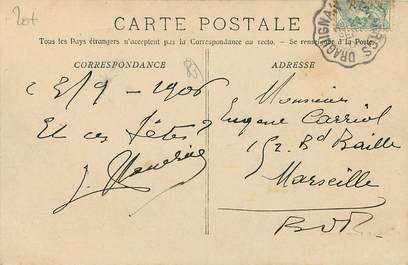 CARTE POSTALE
Tous les Pays étrangers n'acceptent pas la Correspondance au recto. Se renseigner à la Poste.
CORRESPONDANCE
ADRESSE
DRAGUIGNAN
83
Le 5/9 - 1906
Et ces fêtes?
Monsieur
Eugene Carriol
152. Bd Baille
Marseille
BDR